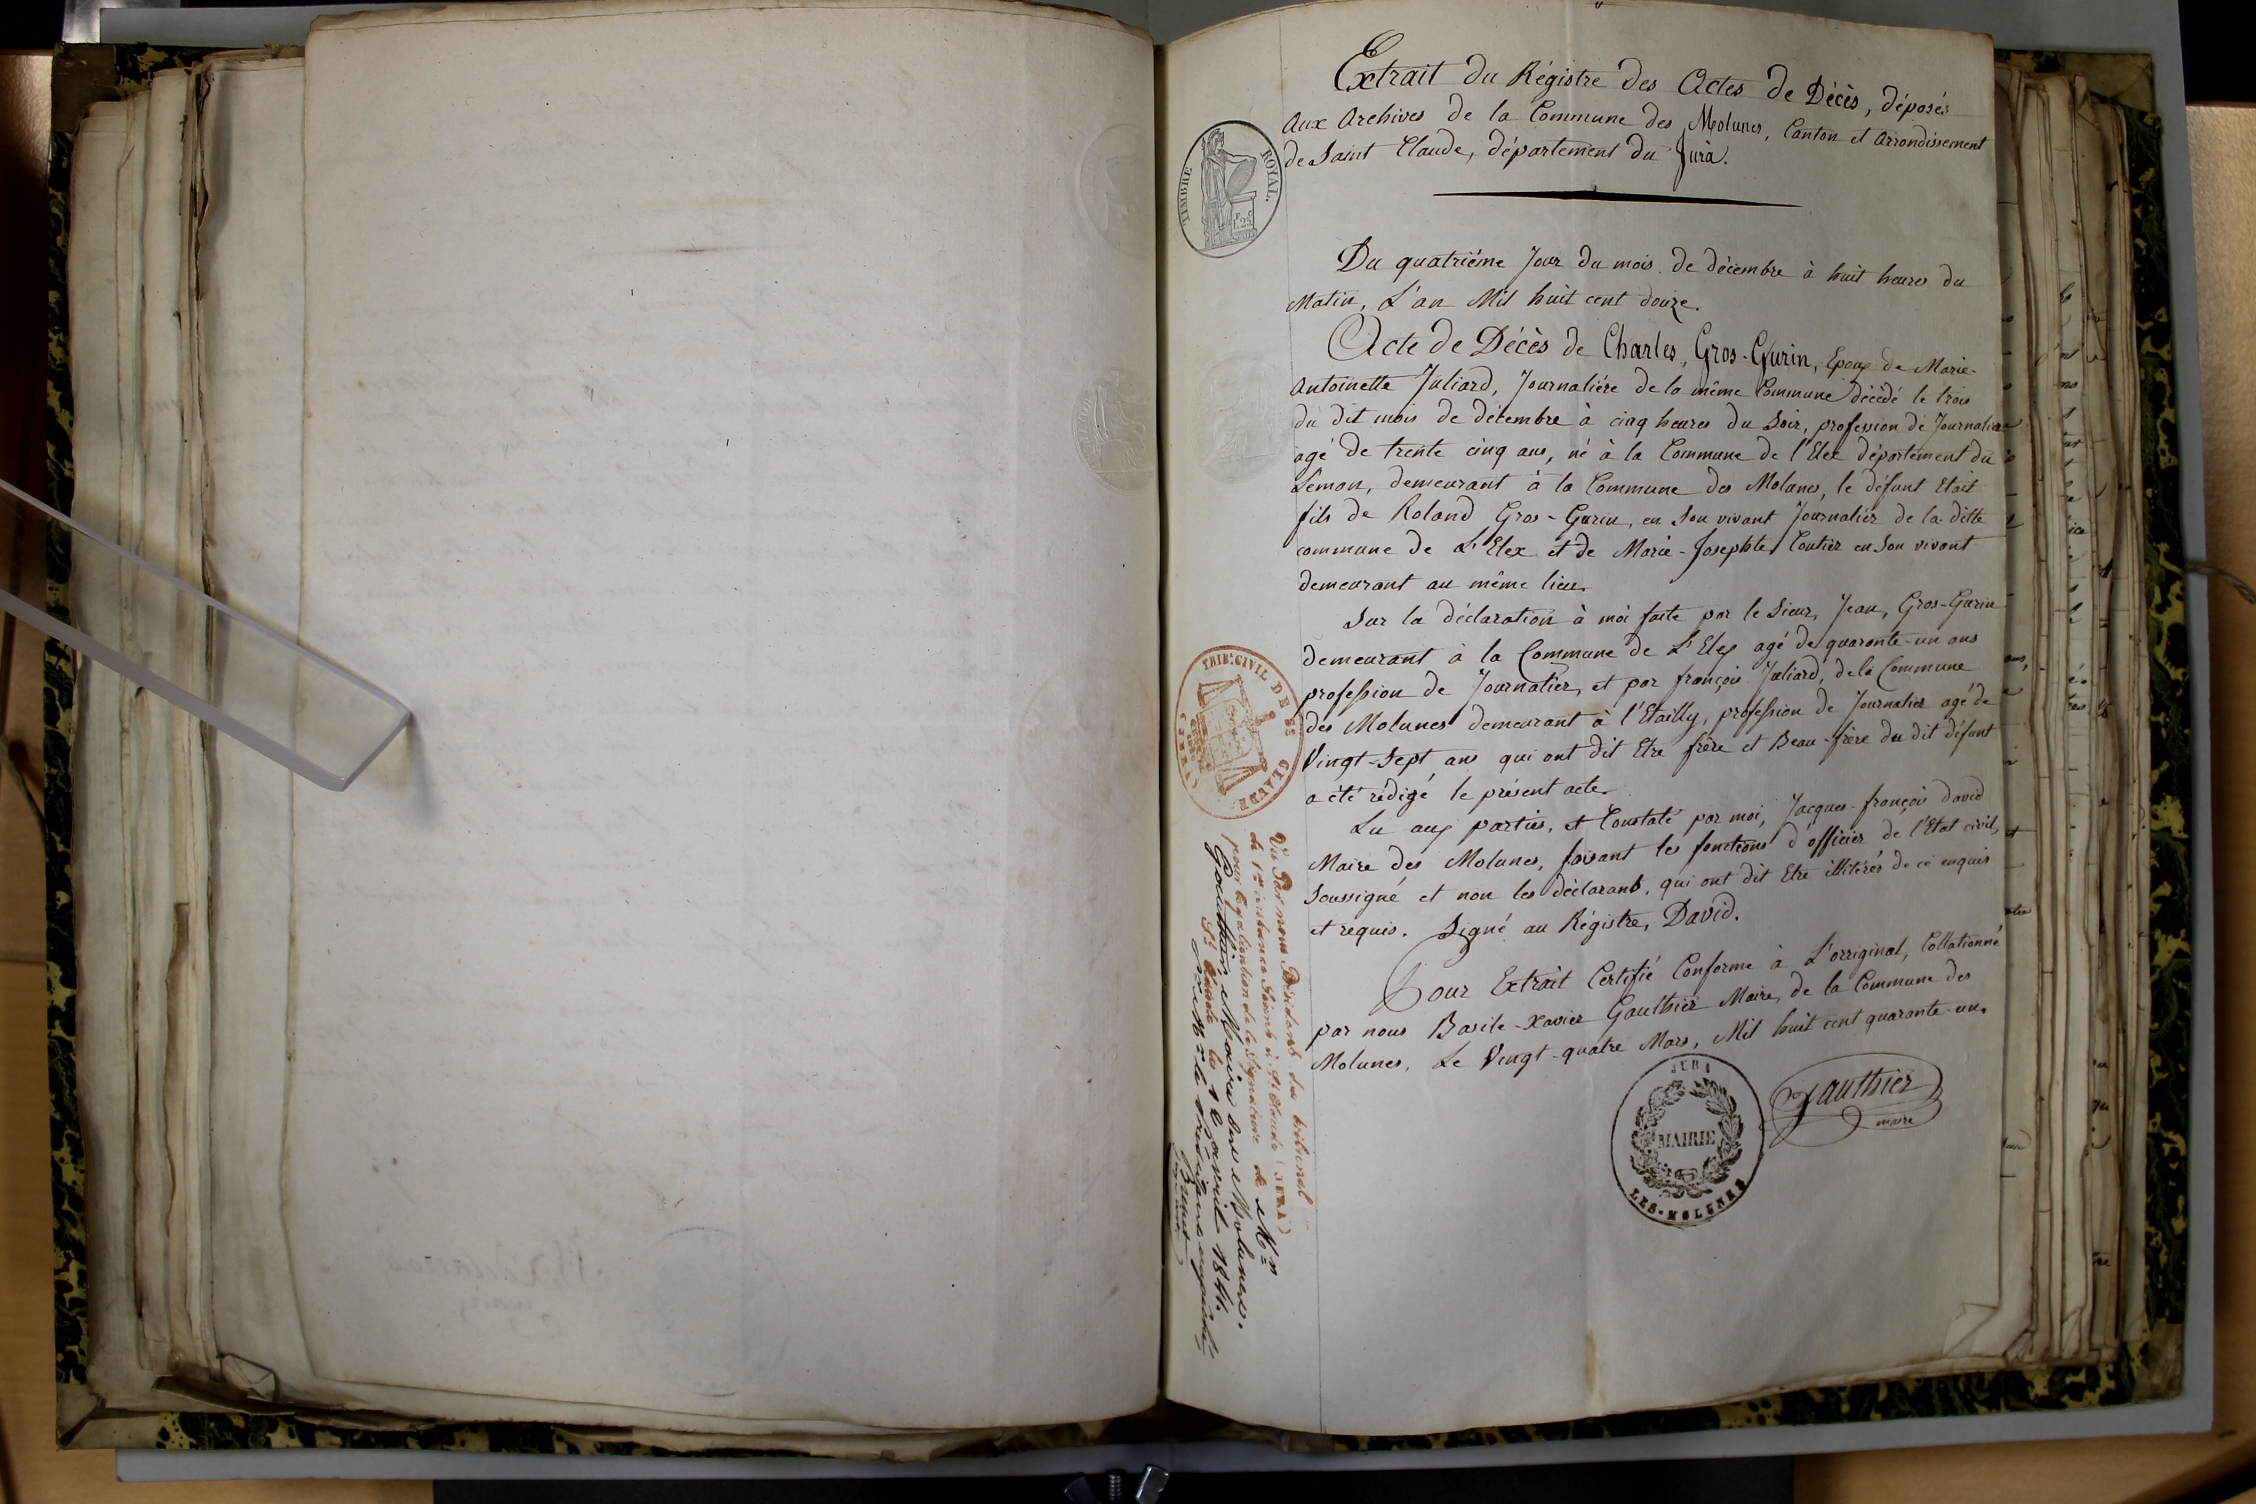 Extrait du Régistre des Actes de Décès, déposés
Aux Archives de la Commune des Molunes, Canton et Arrondissement
de Saint Claude, département du Jura.
TIMBRE ROYAL.
Du quatriéme Jour du mois de décembre à huit heures du
Matin, L'an Mil huit cent douze.
Acte de Décès de Charles, Gros-Gurin, Epoux de Marie-
Antoinette Juliard, Journaliére de la même Commune décédé le trois
du dit mois de décembre à cinq heures du Soir, profession de Journalier
agé de trente cinq ans, né à la Commune de l'Elex département du
Leman, demeurant à la Commune des Molunes, le défunt Etait
fils de Roland Gros-Gurin, en Son vivant Journalier de la ditte
commune de L'Elex et de Marie-Josephte Coutier en Son vivant
demeurant au même lieu.
Sur la déclaration à moi faite par le Sieur, Jean, Gros-Gurin
demeurant à la Commune de L'Elex agé de quarante-un ans
profession de Journalier, et par françois Juliard, de la Commune
des Molunes demeurant à l'Etailly, profession de Journalier agé de
Vingt-Sept ans qui ont dit Etre frère et Beau-frère du dit défunt
a été rédigé le présent acte.
Lu aux parties, et Constaté par moi, Jacques-françois david
Maire des Molunes, faisant les fonctions d'officier de l'Etat civil,
Soussigné et non les déclarants, qui ont dit Etre illitérés de ce enquis
et requis. Signé au Régistre, David.
Pour Extrait Certifié Conforme à L'orriginal, Collationné
par nous Basile-Xavier Gauthier Maire, de la Commune des
Molunes, Le Vingt-quatre Mars, Mil huit cent quarante-un.
Gauthier
maire
JURA
MAIRIE
LES-MOLUNES
TRIB. CIVIL DE St CLAUDE (JURA)
Vu Par nous Président du tribunal
de 1re instance Séant à St Claude (JURA)
pour légalisation de la Signature de Mr
Gauthier Maire des Molunes.
St Claude le 12 avril 1841.